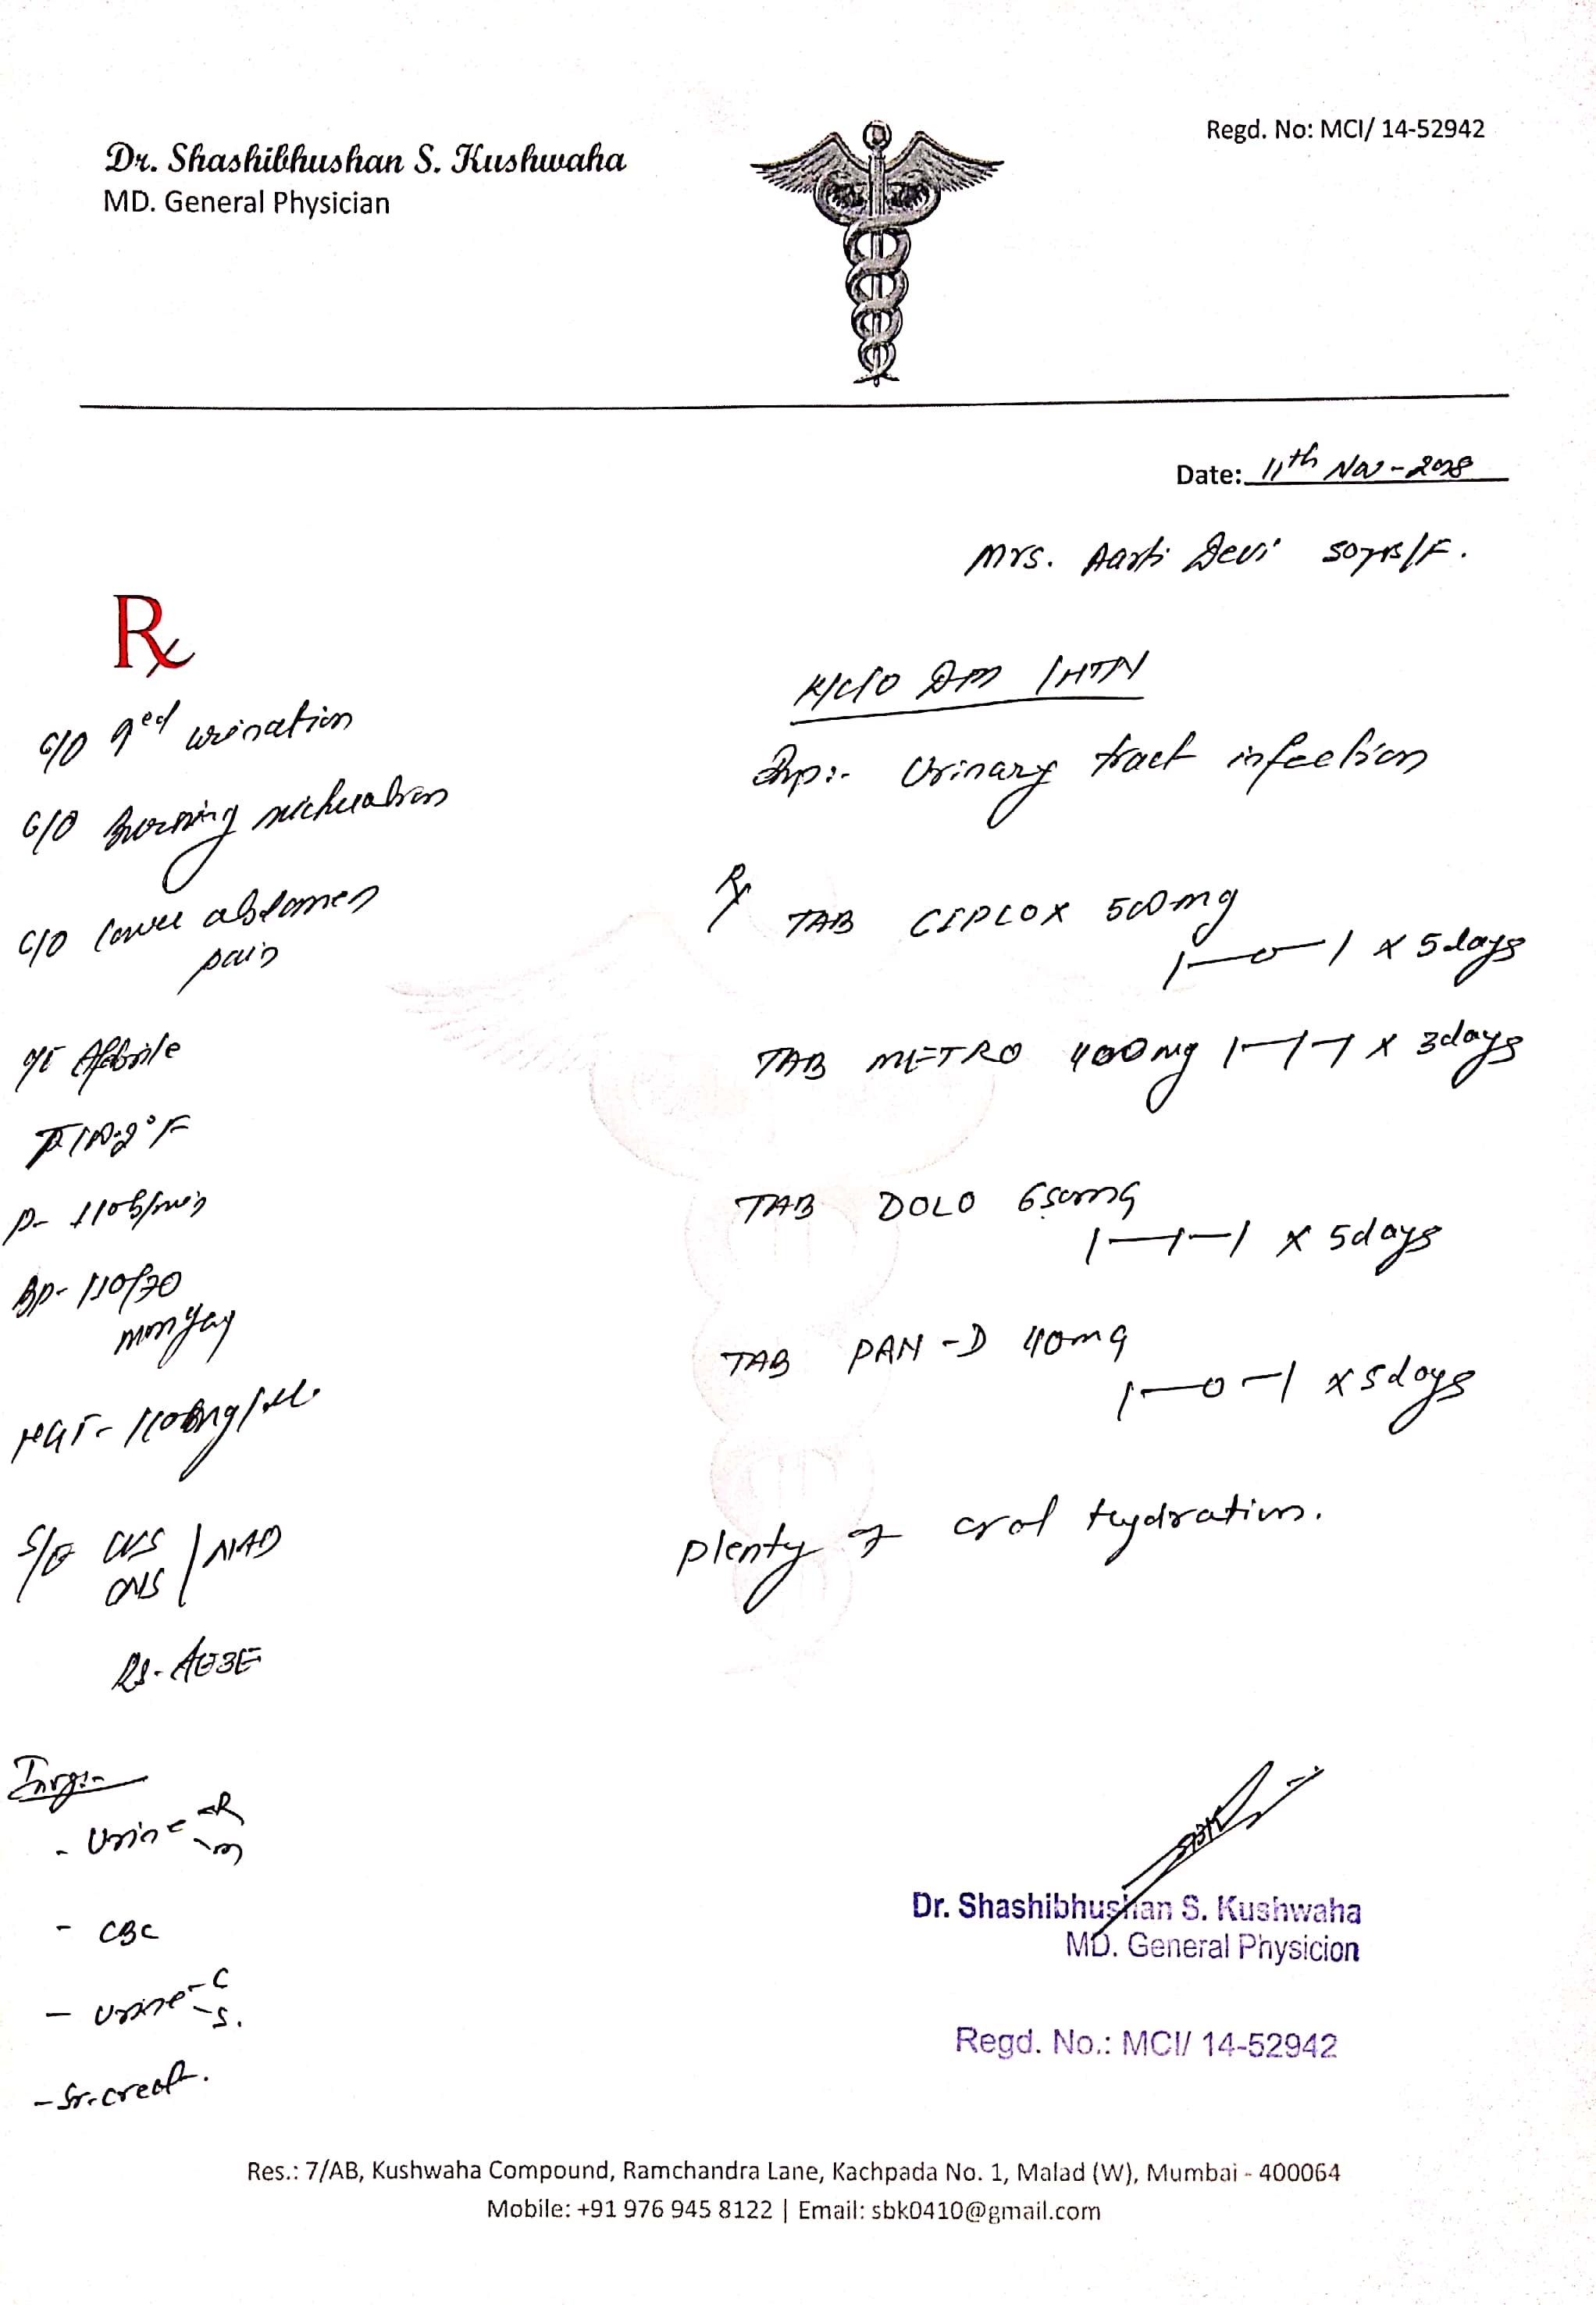 Dr. Shashibhushan S. Kushwaha
MD. General Physician
Regd. No: MCI/ 14-52942
Date: 11th Nov-2018
Mrs. Aarti Devi 50yrs/F.
Rx
C/O ↑ed urination
C/O Burning micturation
C/O lower abdomen
pain
O/E Afebrile
°F
P- 110b/min
BP- 110/70
mmHg
HGT- mg/dl.
S/E CVS / NAD
CNS
RS- AEBE
Invg:-
- Urine -R
-m
- CBC
- Urine -C
-S.
- Sr. creat.
K/C/O DM /HTN
Imp:- Urinary tract infection
Rx TAB CIPLOX 500mg
1—0—1 x 5days
TAB METRO 400mg 1-1-1 x 3days
TAB DOLO 650mg
1—1—1 x 5days
TAB PAN-D 40mg
1—0—1 x 5days
plenty of oral hydration.
Dr. Shashibhushan S. Kushwaha
MD. General Physicion
Regd. No.: MCI/ 14-52942
Res.: 7/AB, Kushwaha Compound, Ramchandra Lane, Kachpada No. 1, Malad (W), Mumbai - 400064
Mobile: +91 976 945 8122 | Email: sbk0410@gmail.com